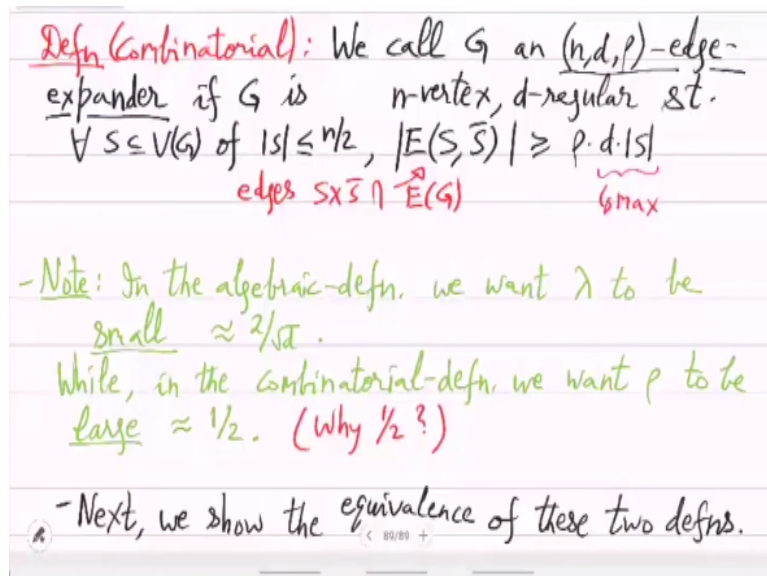 Defn (Combinatorial): We call G an (n,d,ρ)-edge-
expander if G is n-vertex, d-regular st.
∀ S⊆V(G) of |S|≤n/2, |E(S,S̄)| ≥ ρ.d.|S|
edges S×S̄ ∩ E(G) ↳max
- Note: In the algebraic-defn. we want λ to be
small ≈ 2/√d.
While, in the combinatorial-defn. we want ρ to be
large ≈ 1/2. (Why 1/2?)
- Next, we show the equivalence of these two defns.
< 89/89 +